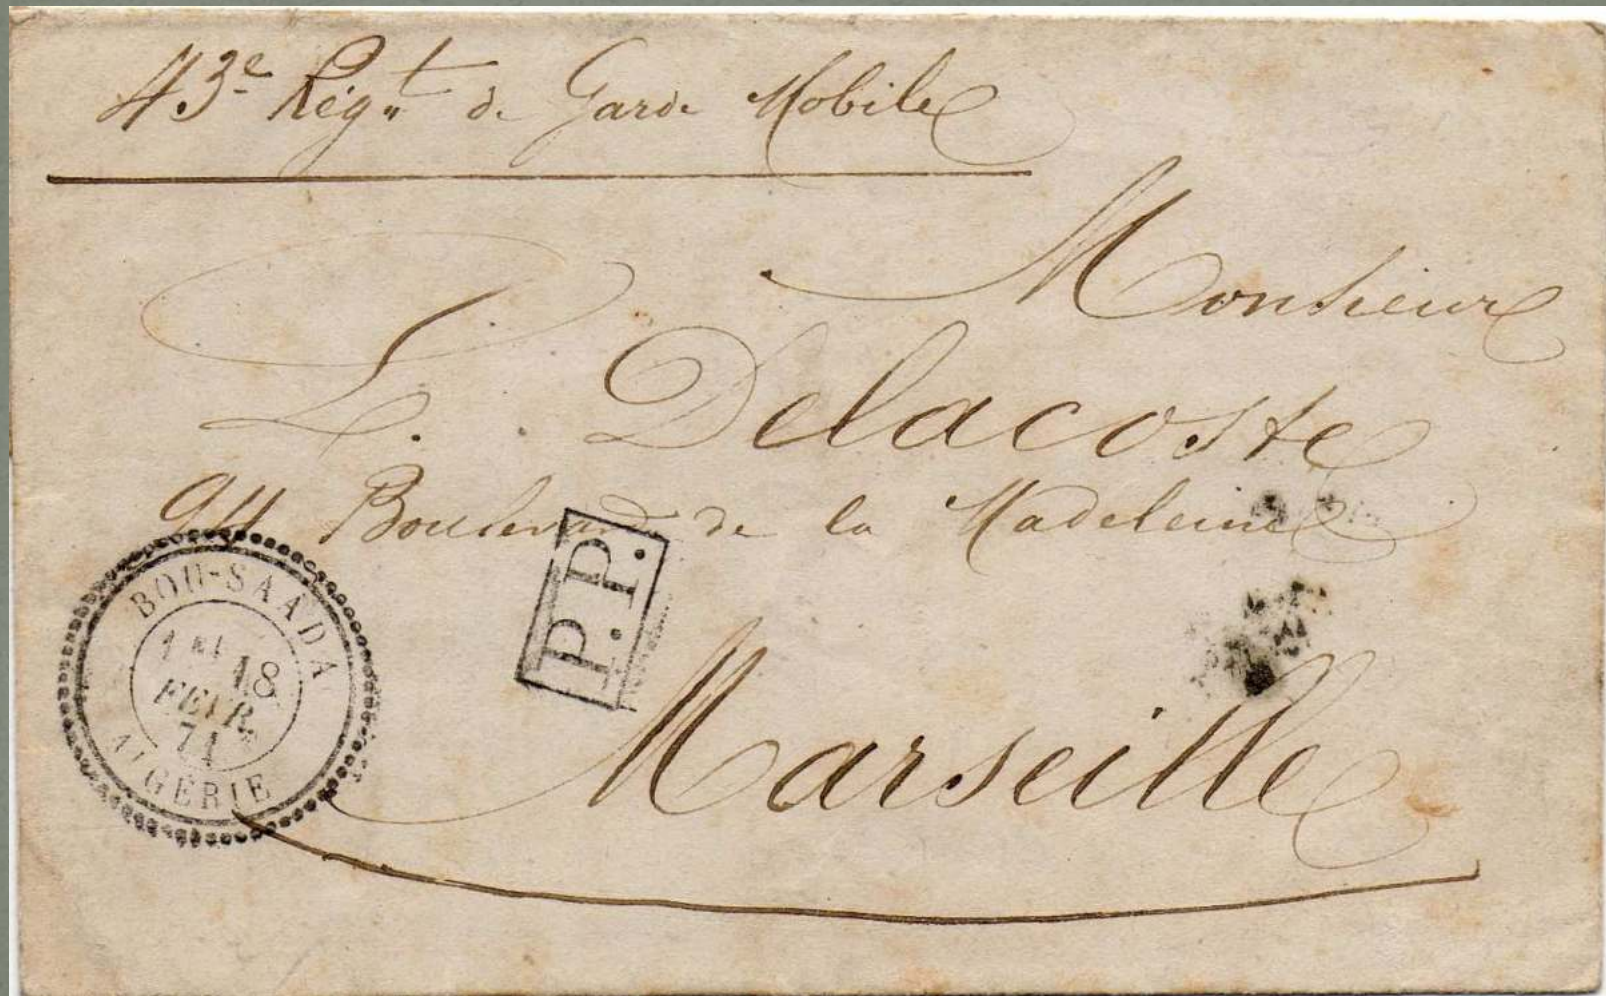 43e Régt de Garde Mobile
Monsieur
L. Delacoste
94 Boulevard de la Madeleine
P.P.
BOU-SAADA
1re
18
FEVR.
71
ALGÉRIE
Marseille